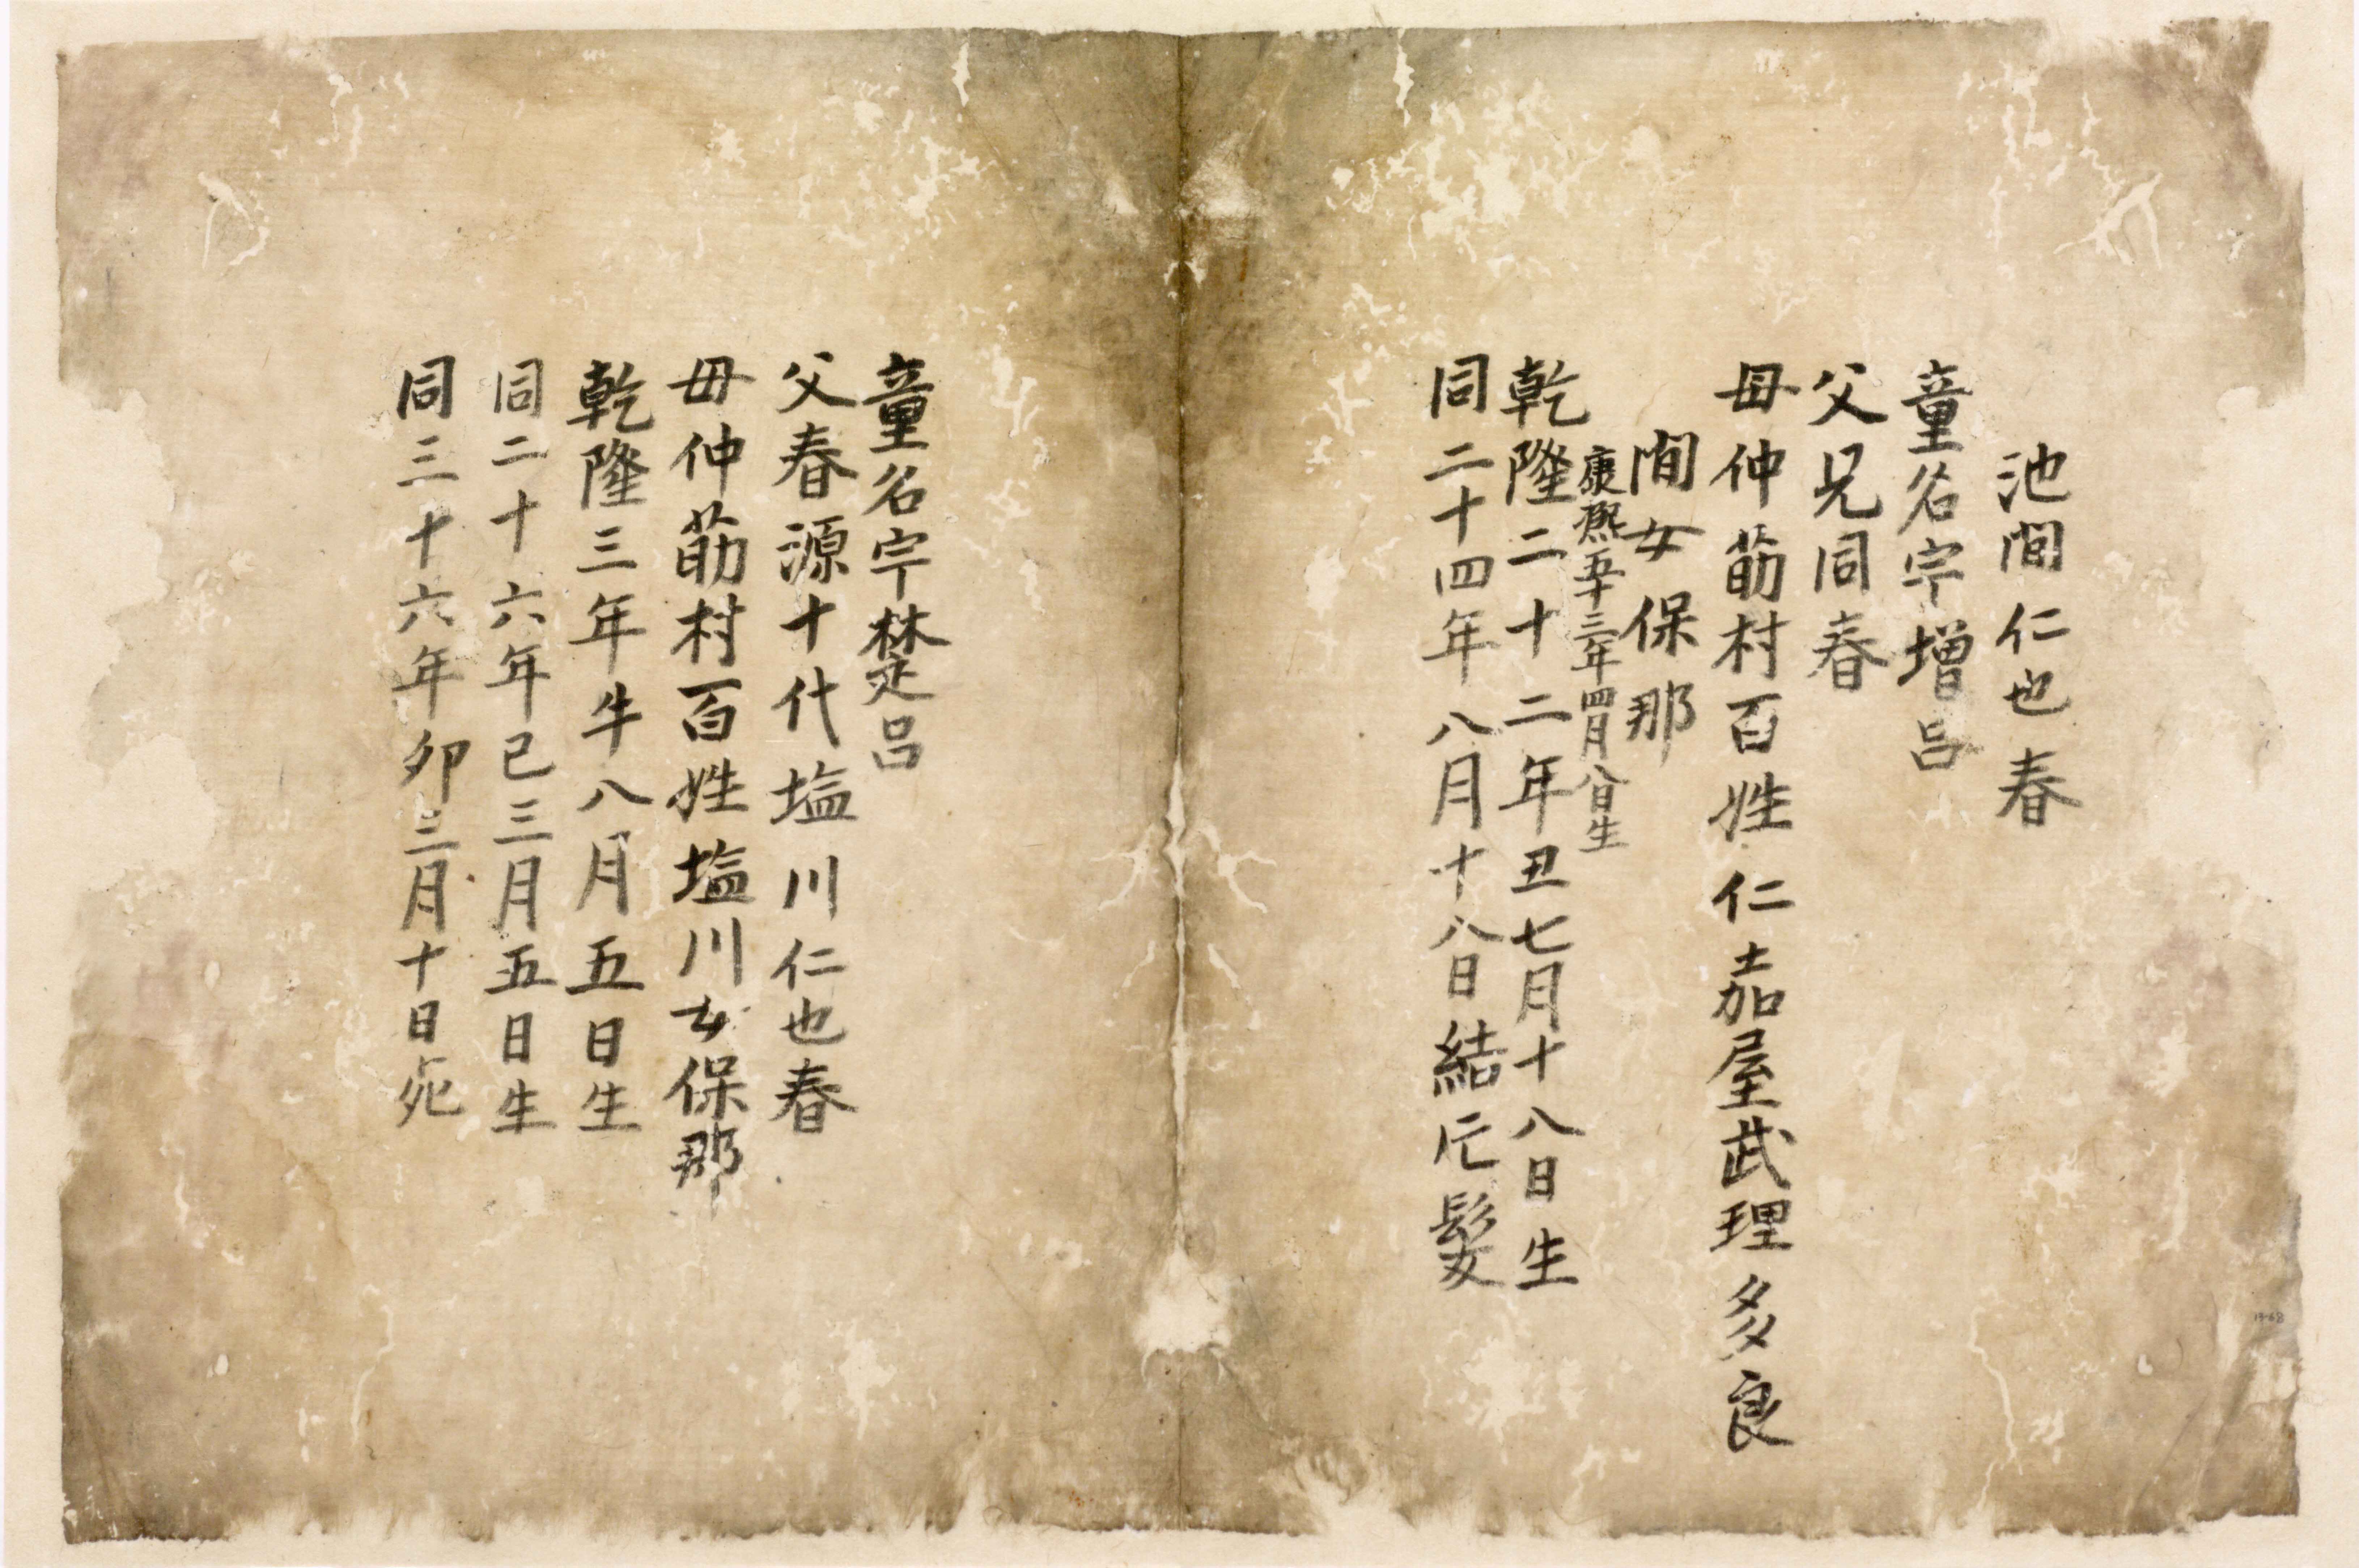 池間仁也春
童名宇増呂
父兄同春
母仲筋村百姓仁嘉屋武理多良
間女保那
康熙五十三年四月八日生
乾隆二十二年丑七月十八日生
同二十四年八月十八日結片髪
童名宇楚呂
父春源十代塩川仁也春
母仲筋村百姓塩川女保那
乾隆三年午八月五日生
同二十六年巳三月五日生
同三十六年卯三月十日死